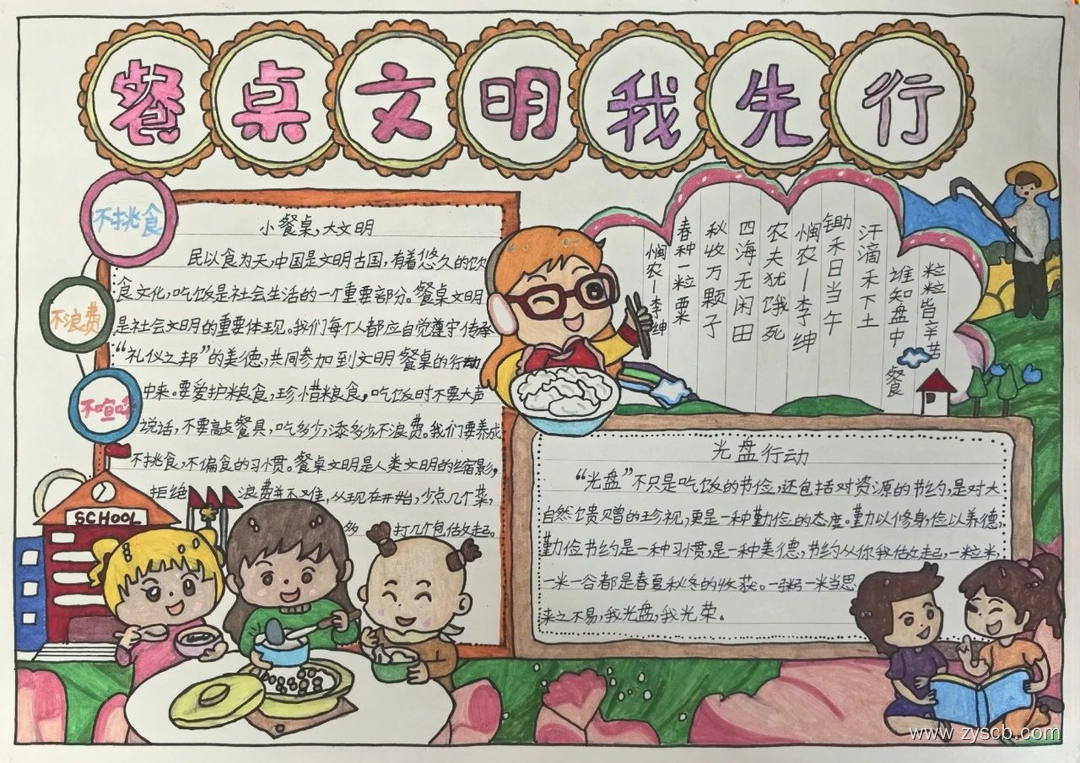 餐桌文明我先行
不挑食
不浪费
不喧哗
小餐桌,大文明
民以食为天,中国是文明古国,有着悠久的饮
食文化,吃饭是社会生活的一个重要部分。餐桌文明
是社会文明的重要体现。我们每个人都应自觉遵守传承
“礼仪之邦”的美德,共同参加到文明餐桌的行动
中来。要爱护粮食,珍惜粮食,吃饭时不要大声
说话,不要敲餐具,吃多少,添多少,不浪费。我们要养成
不挑食,不偏食的习惯。餐桌文明是人类文明的缩影,
拒绝浪费并不难,从现在开始,少点几个菜,
多打几个包做起。
SCHOOL
悯农一李绅
春种一粒粟
秋收万颗子
四海无闲田
农夫犹饿死
悯农一李绅
锄禾日当午
汗滴禾下土
谁知盘中餐
粒粒皆辛苦
光盘行动
“光盘”不只是吃饭的节俭,还包括对资源的节约,是对大
自然馈赠的珍视,更是一种勤俭的态度。勤以修身,俭以养德,
勤俭节约是一种习惯,是一种美德,节约从你我做起,一粒米,
一米一谷都是春夏秋冬的收获。一粥一米当思
来之不易,我光盘,我光荣。
www.zyscb.com